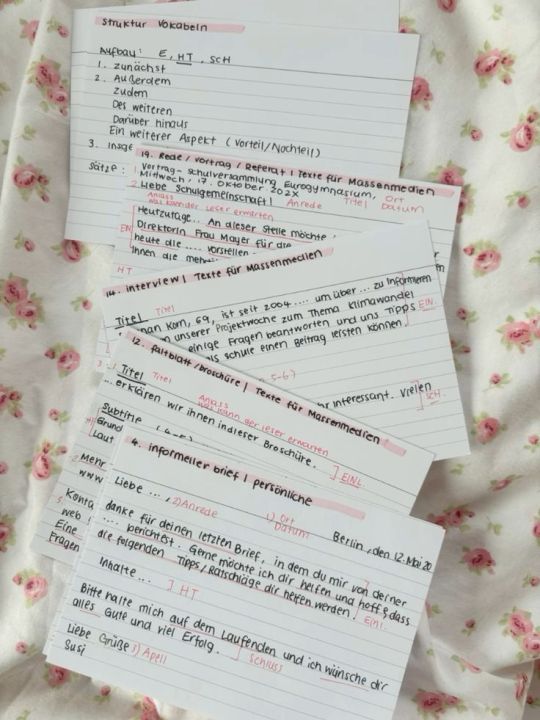 Struktur Vokabeln
Aufbau: E, HT, SCH
1. zunächst
2. Außerdem
Zudem
Des weiteren
Darüber hinaus
Ein weiterer Aspekt (Vorteil/Nachteil)
3. Insge
Sätze:
19. Rede / Vortrag / Referat | Texte für Massenmedien
1 Vortrag - Schulversammlung Eurogymnasium, Ort
Mittwoch, 17. Oktober 202X Titel Datum
2 Liebe Schulgemeinschaft! Anrede
Anlass
was kann der Leser erwarten
Heutzutage... An dieser Stelle möchte
Direktorin Frau Mayer für die
heute die .... vorstellen
Ihnen die mehr
HT
14. Interview | Texte für Massenmedien
Titel Titel
man Korn, 69, ist seit 2004 .... um über ... zu informieren
unserer Projektwoche zum Thema Klimawandel
einige Fragen beantworten und uns Tipps EIN.
als Schule einen Beitrag leisten können
5-6)
hr interessant. Vielen
SCH.
12. Faltblatt / broschüre | Texte für Massenmedien
Titel Titel
Anlass
was kann der Leser erwarten
... erklären wir ihnen in dieser Broschüre. ] EINL.
Subtitle
Grund
Laut
Mehr
www
Konta
web
Eine
Fragen
4. informeller brief | persönliche
Liebe ..., 2) Anrede
1) Ort
Datum
Berlin, den 12. Mai 20
danke für deinen letzten Brief, in dem du mir von deiner
.... berichtest. Gerne möchte ich dir helfen und hoffe, dass
die folgenden Tipps/Ratschläge dir helfen werden ] Einl.
Inhalte ... ] HT
Bitte halte mich auf dem Laufenden und ich wünsche dir
alles Gute und viel Erfolg. ] Schluss
Liebe Grüße 3) Apell
Susi